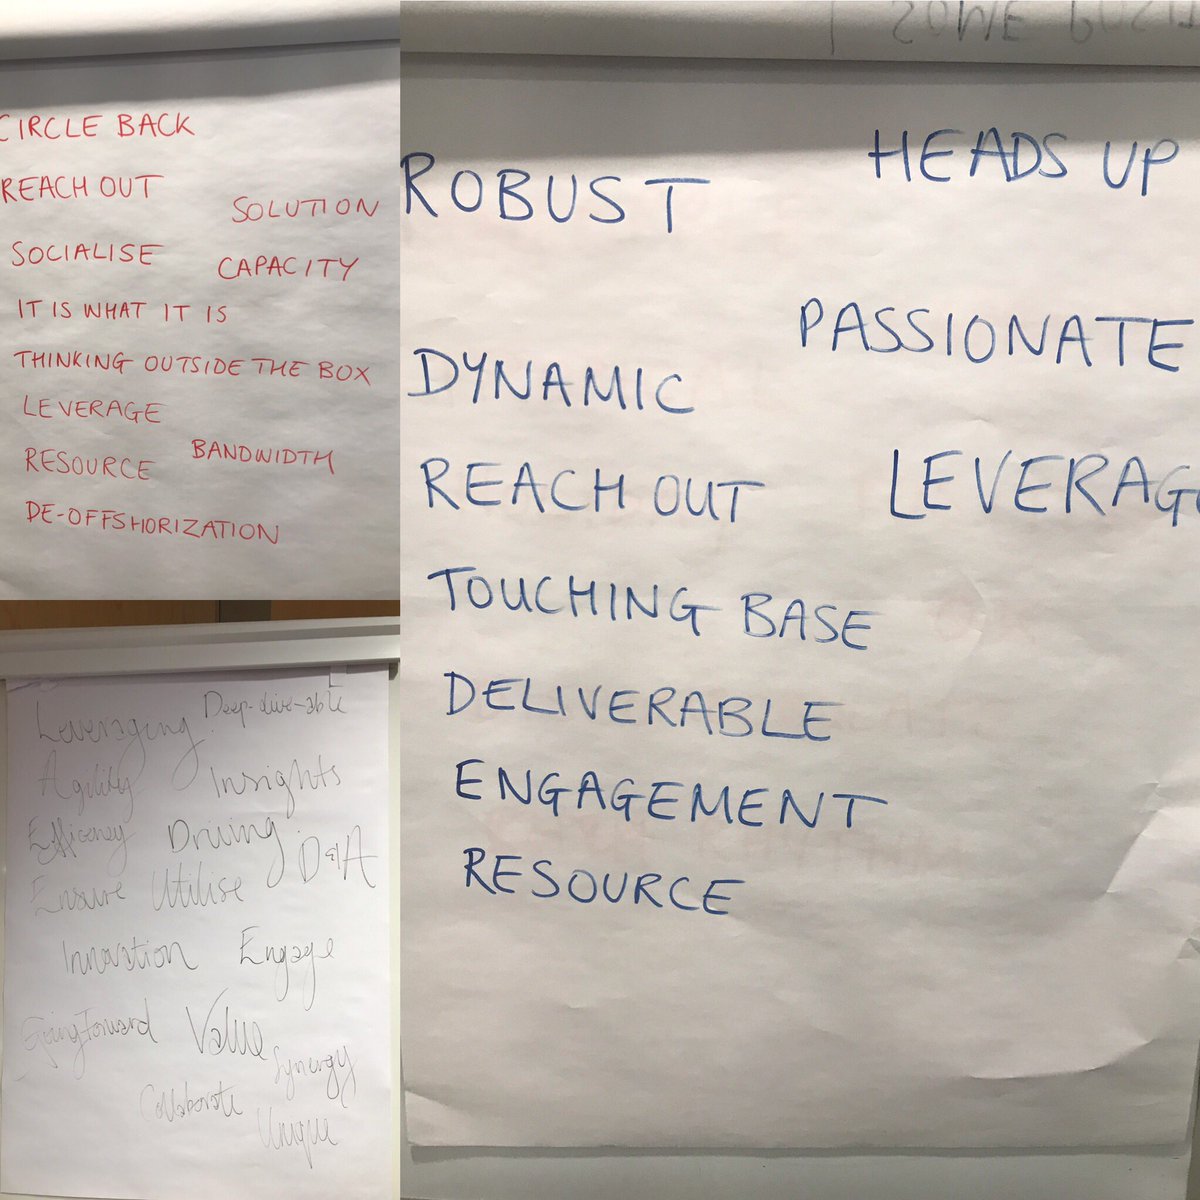 CIRCLE BACK
REACH OUT
SOLUTION
SOCIALISE
CAPACITY
IT IS WHAT IT IS
THINKING OUTSIDE THE BOX
LEVERAGE
BANDWIDTH
RESOURCE
DE-OFFSHORIZATION
Leveraging
Deep-dive-able
Agility
Insights
Efficency
Driving
D&A
Ensure
Utilise
Innovation
Engage
Going Forward
Value
Synergy
Collaborate
Unique
SOME
HEADS UP
ROBUST
PASSIONATE
DYNAMIC
LEVERAG
REACH OUT
TOUCHING BASE
DELIVERABLE
ENGAGEMENT
RESOURCE